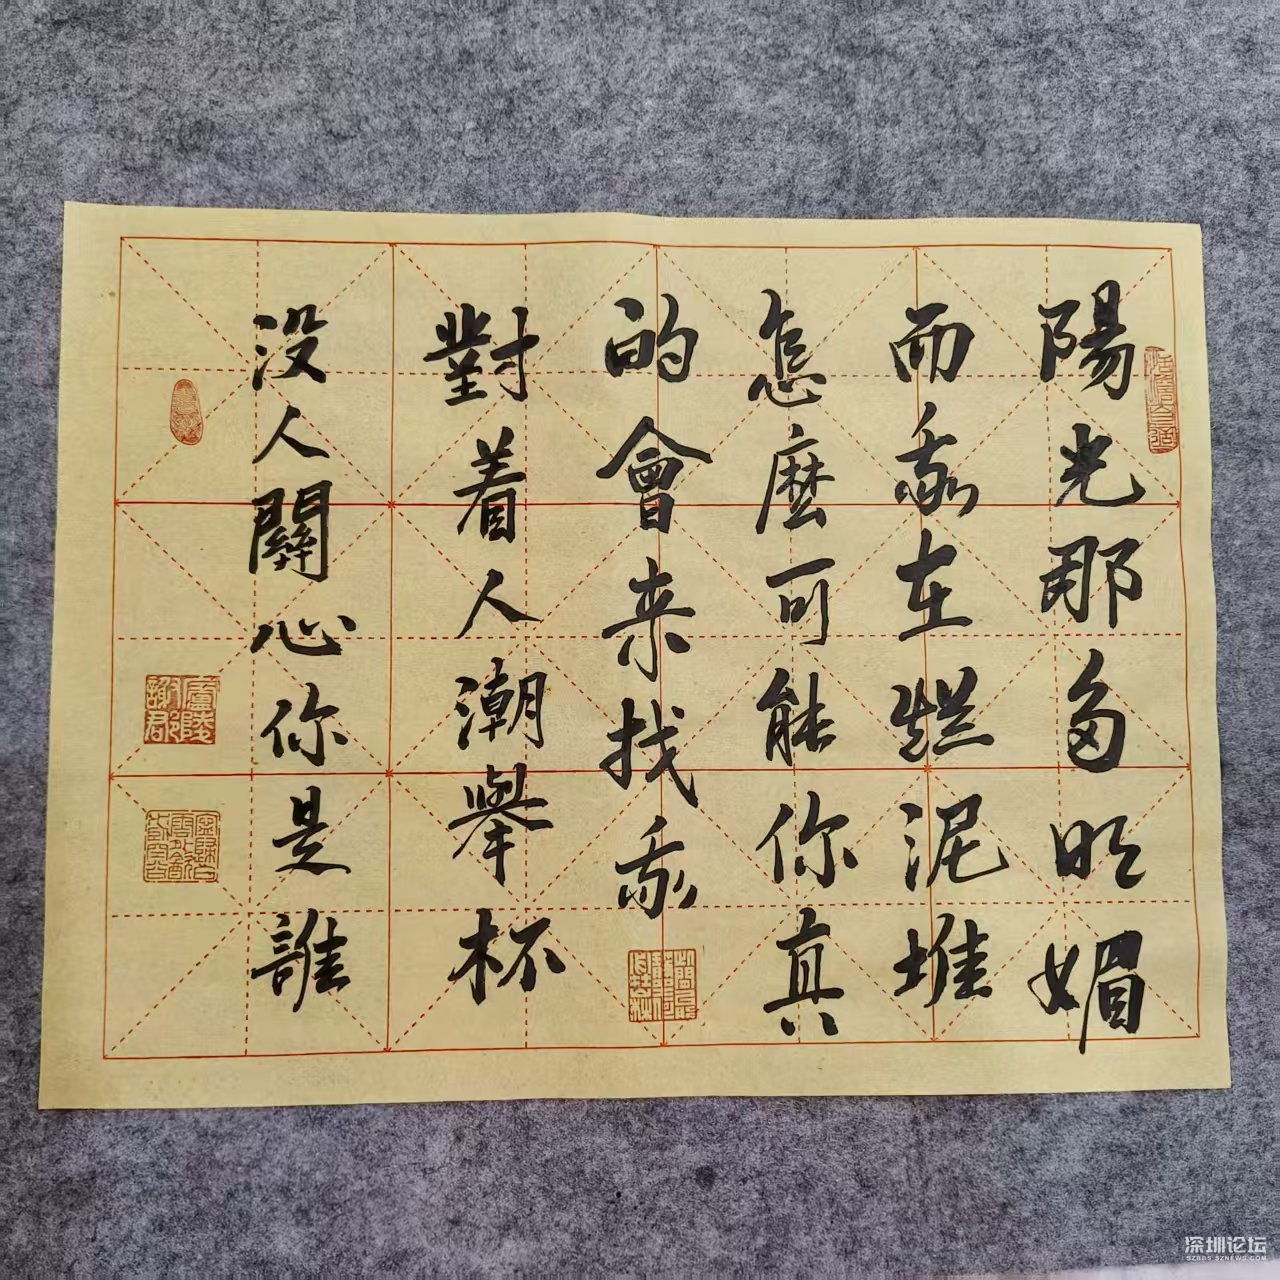 陽光那多明媚
而我在爛泥堆
怎麽可能你真
的會来找我
對着人潮舉杯
没人關心你是誰
深圳论坛
SZBBS.SZNEWS.COM